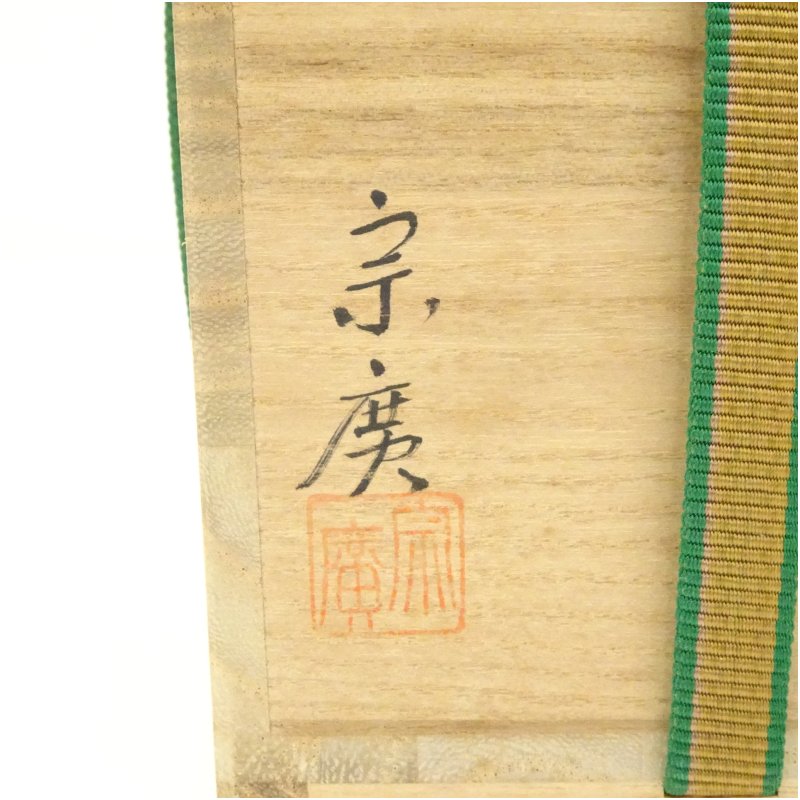 宗廣
宗廣